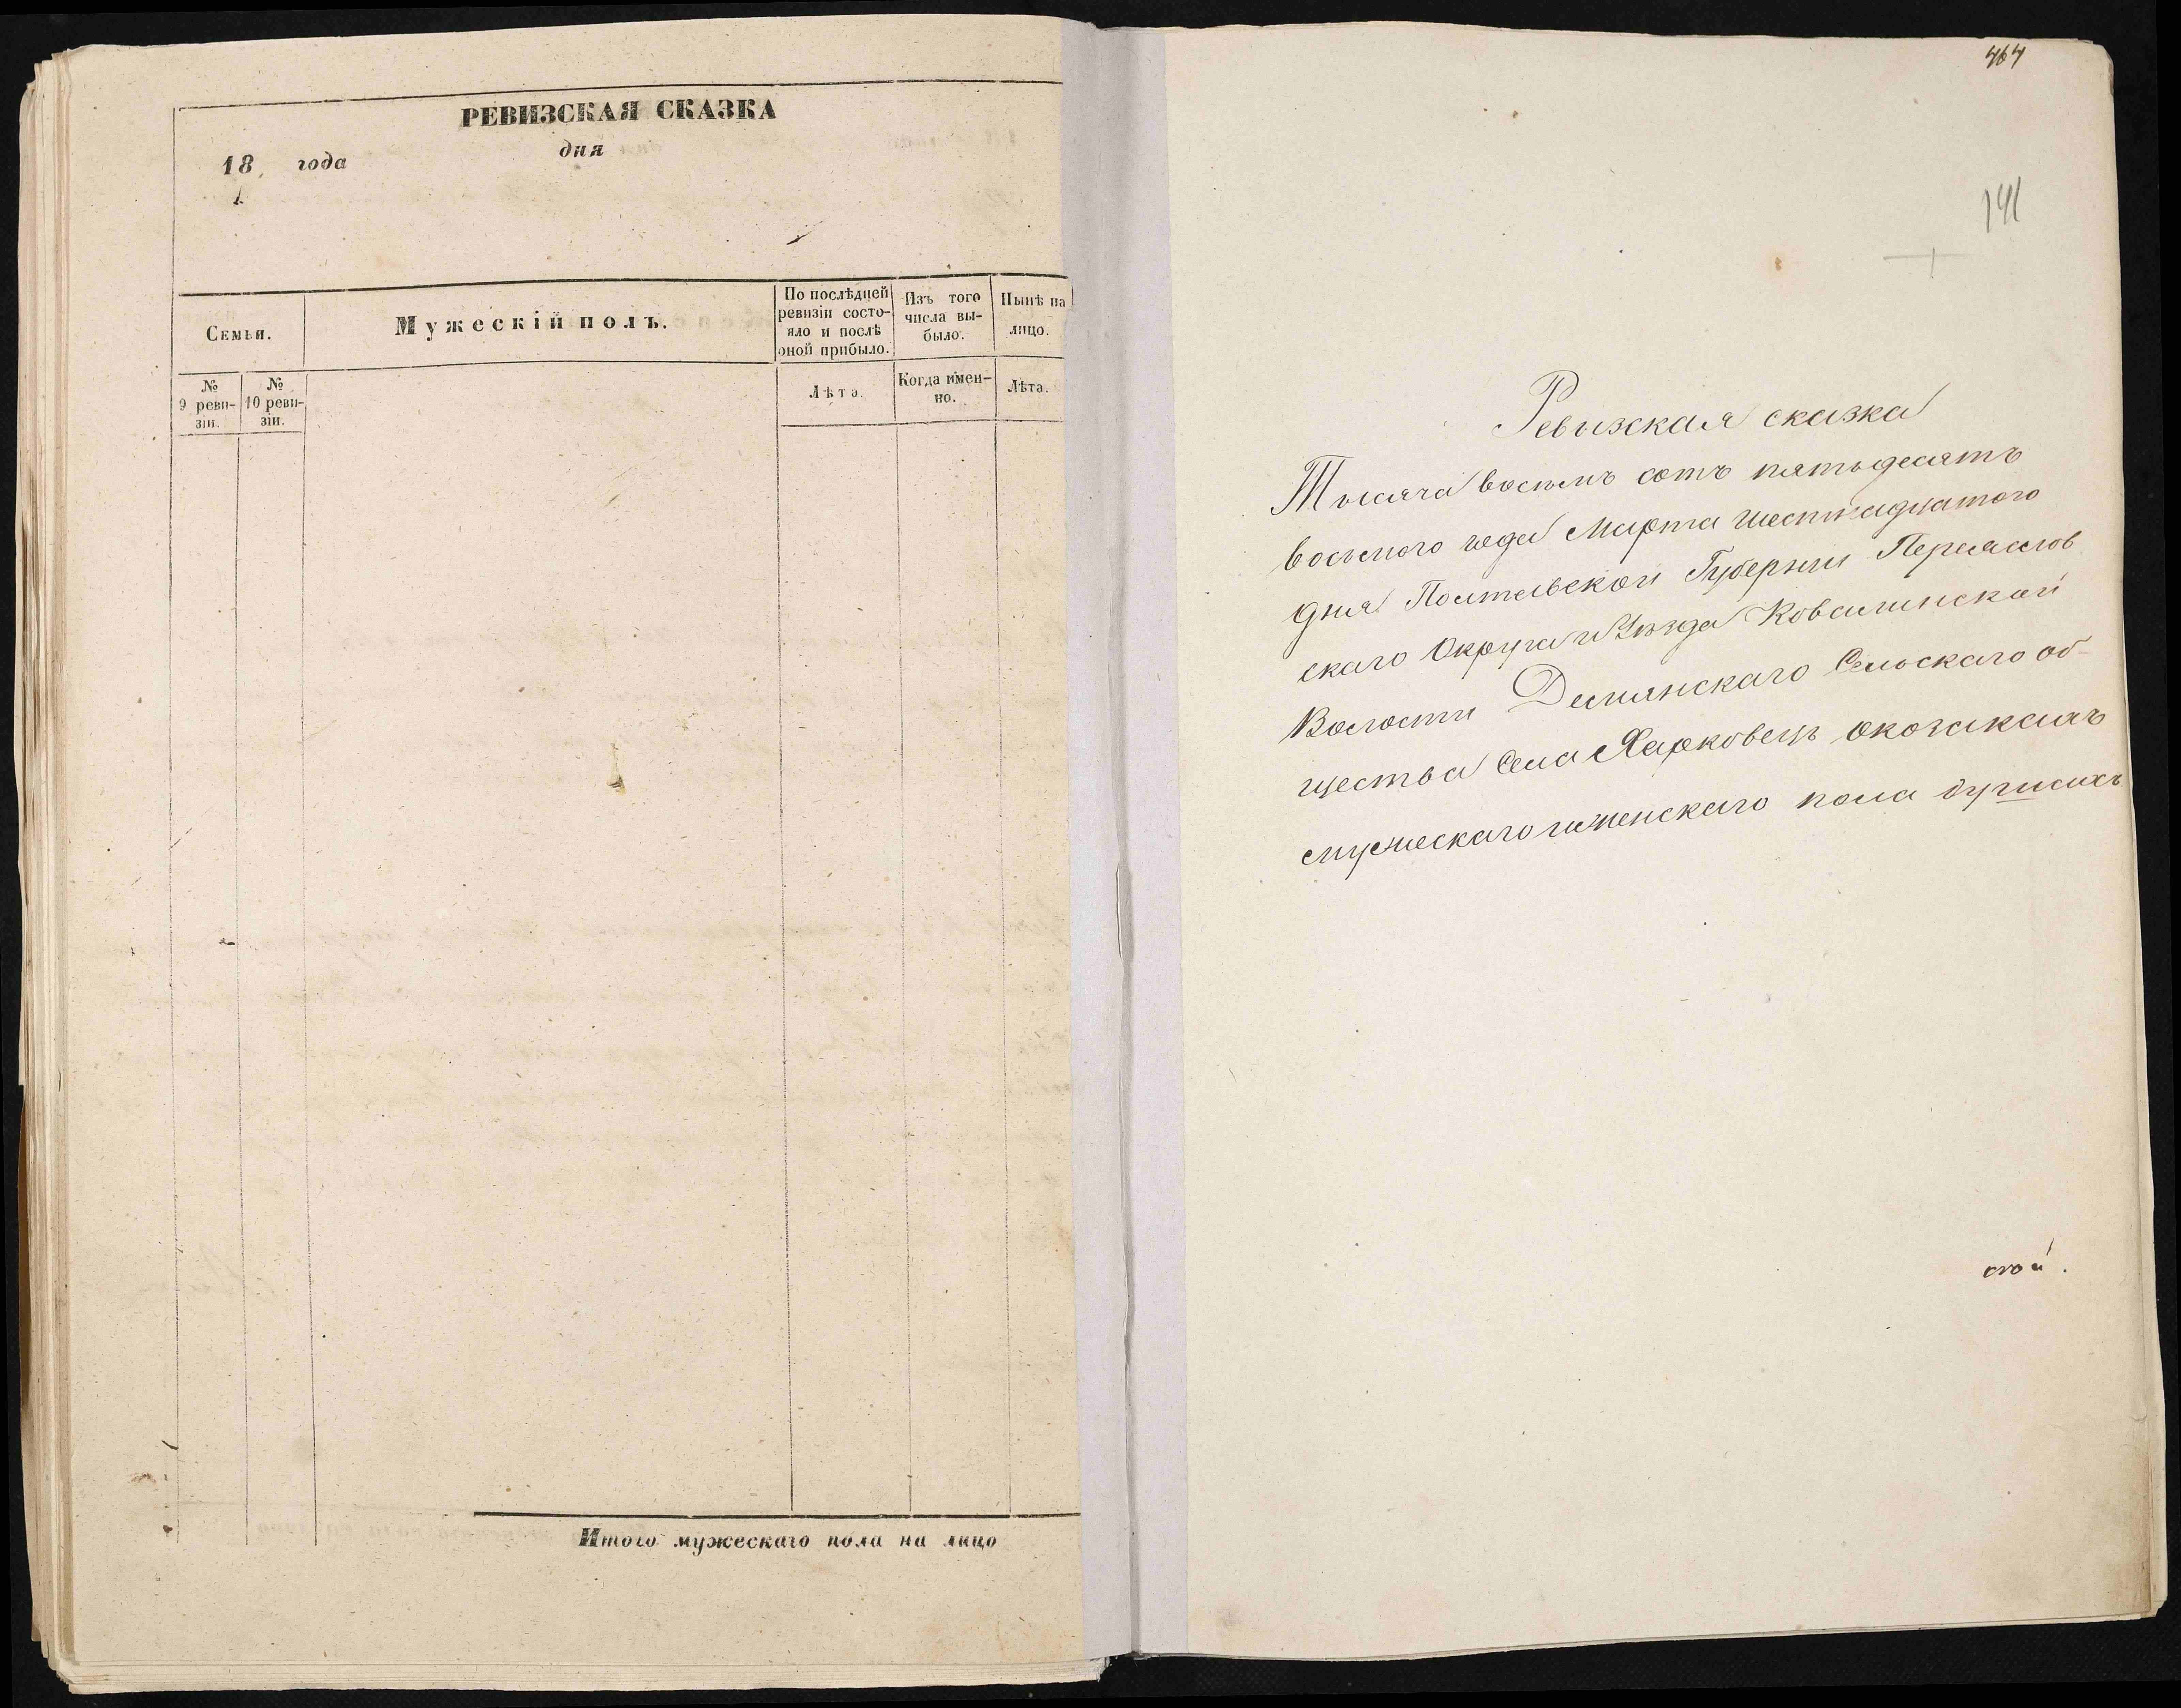 РЕВИЗСКАЯ СКАЗКА
18 года дня
Семья.
Мужескій полъ.
По послѣдней
ревизіи состо-
яло и послѣ
оной прибыло.
Изъ того
числа вы-
было.
Нынѣ на
лицо.
№
9 реви-
зіи.
№
10 реви-
зіи.
Лѣта.
Когда имен-
но.
Лѣта.
Итого мужескаго пола на лицо
464
141
Ревизская сказка
Тысяча восемь сотъ пятьдесятъ
восьмого года Марта шестнадцатого
дня Полтавской Губерніи Переяслов
скаго Округа и Уѣзда Ковалинской
Волости Демянскаго Сельскаго об-
щества Села Харковецъ о козакахъ
мужескаго и женскаго пола душахъ